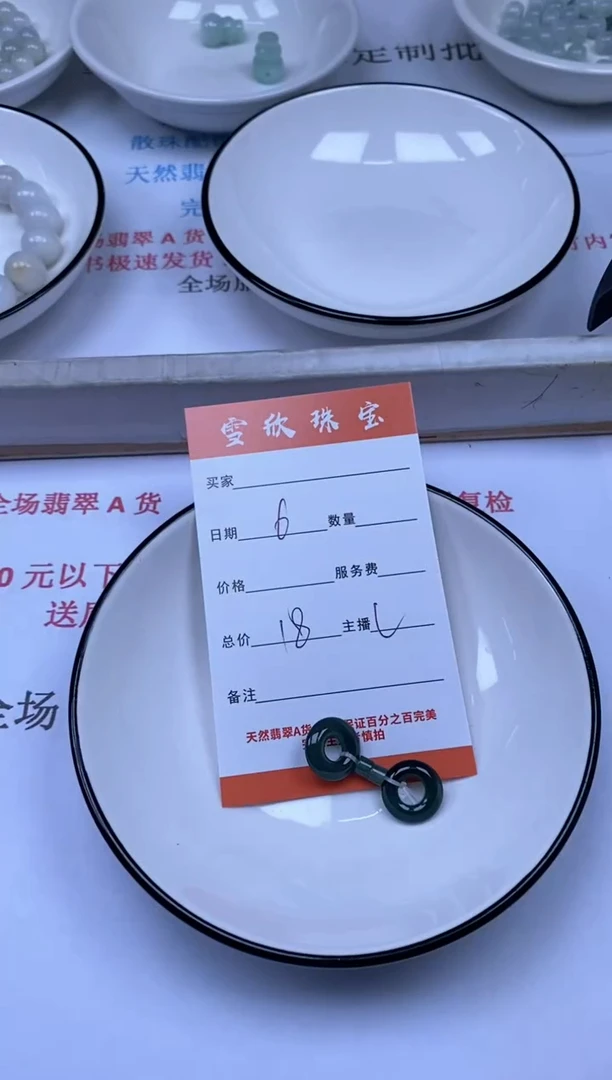 定制批
散珠
天然翡
完
翡翠 A 货
书极速发货
全场
雪欣珠宝
买家
日期 6 数量
价格 服务费
总价 18 主播 L
备注
天然翡翠A货 证百分之百完美
慎拍
全场翡翠 A 货
复检
0 元以下
送
全场